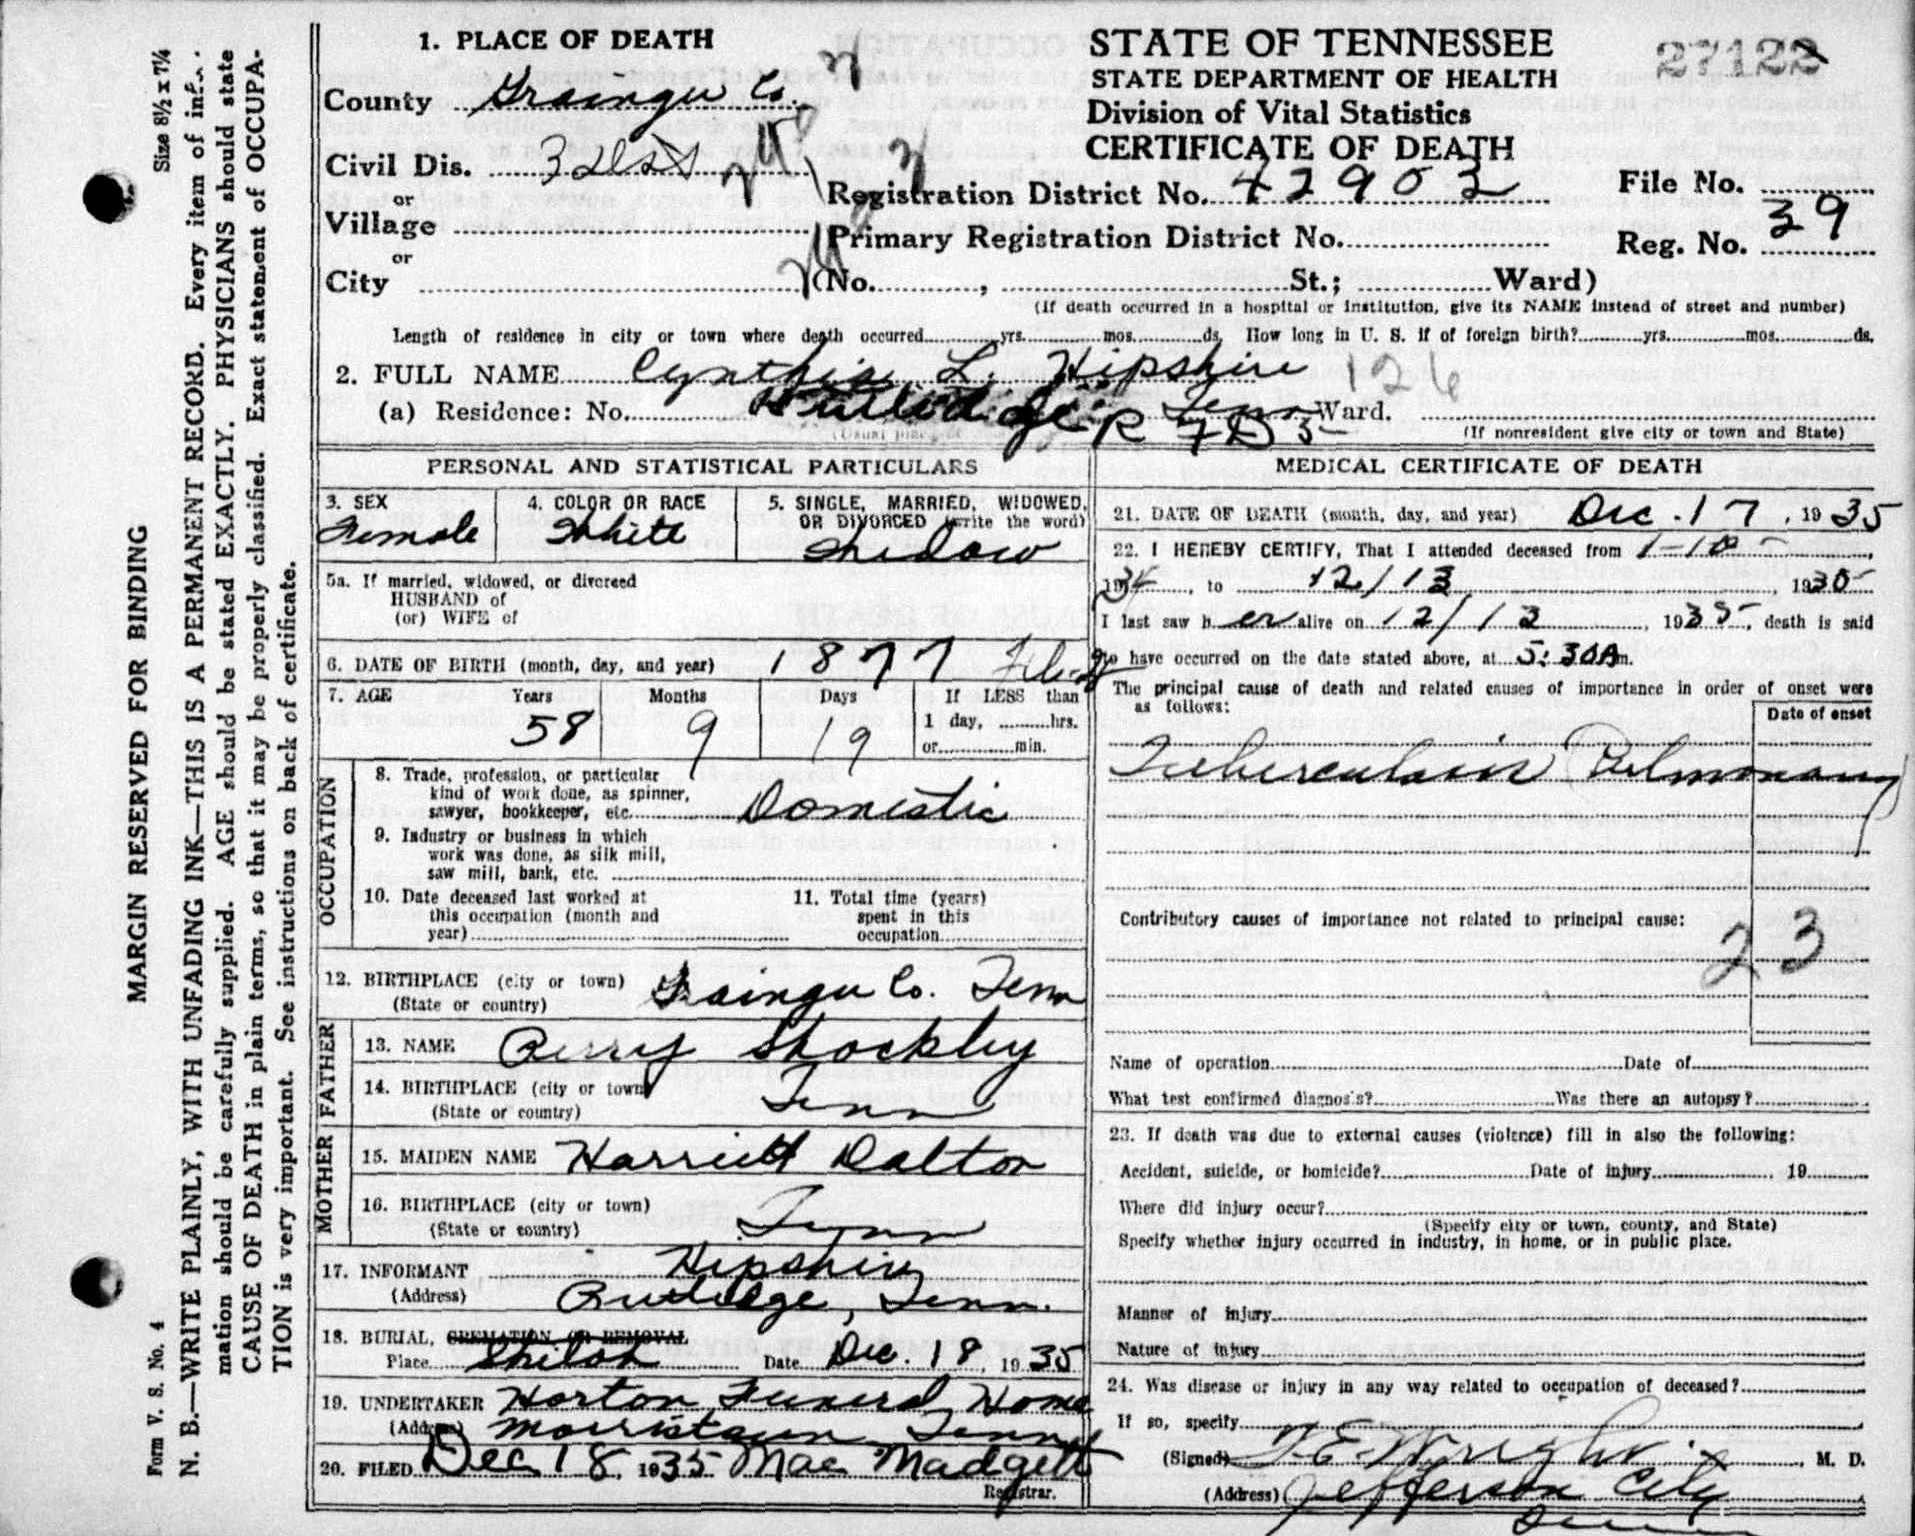 MARGIN RESERVED FOR BINDING
N. B.—WRITE PLAINLY, WITH UNFADING INK—THIS IS A PERMANENT RECORD. Every item of
mation should be carefully supplied. AGE should be stated EXACTLY. PHYSICIANS should state
CAUSE OF DEATH in plain terms, so that it may be properly classified. Exact statement of OCCUPA-
TION is very important. See instructions on back of certificate.
Form V. S. No. 4
Size 8½ x 7¼
1. PLACE OF DEATH
County Grainger Co.
Civil Dis. 3
or
Village
or
City
STATE OF TENNESSEE
STATE DEPARTMENT OF HEALTH
Division of Vital Statistics
CERTIFICATE OF DEATH
27122
Registration District No. 42903
File No.
Primary Registration District No.
Reg. No. 39
(No. , St.; Ward)
(If death occurred in a hospital or institution, give its NAME instead of street and number)
Length of residence in city or town where death occurred yrs. mos. ds. How long in U. S. if of foreign birth? yrs. mos. ds.
2. FULL NAME Cynthia L. Hipshire 126
(a) Residence: No. Rutledge Tenn Ward.
R 7 D 3
(If nonresident give city or town and State)
PERSONAL AND STATISTICAL PARTICULARS
3. SEX
Female
4. COLOR OR RACE
White
5. SINGLE, MARRIED, WIDOWED,
OR DIVORCED (write the word)
Widow
5a. If married, widowed, or divorced
HUSBAND of
(or) WIFE of
6. DATE OF BIRTH (month, day, and year) 1877 Feb
7. AGE Years Months Days If LESS than
58 9 19 1 day, hrs.
or min.
OCCUPATION
8. Trade, profession, or particular
kind of work done, as spinner,
sawyer, bookkeeper, etc. Domestic
9. Industry or business in which
work was done, as silk mill,
saw mill, bank, etc.
10. Date deceased last worked at
this occupation (month and
year)
11. Total time (years)
spent in this
occupation
12. BIRTHPLACE (city or town) Grainger Co. Tenn
(State or country)
FATHER
13. NAME Perry Shockley
14. BIRTHPLACE (city or town) Tenn
(State or country)
MOTHER
15. MAIDEN NAME Harriett Dalton
16. BIRTHPLACE (city or town) Tenn
(State or country)
17. INFORMANT Hipshire
(Address) Rutledge, Tenn.
18. BURIAL, CREMATION OR REMOVAL
Place Shiloh Date Dec. 18, 1935
19. UNDERTAKER Horton Funeral Home
(Address) Morristown Tenn
20. FILED Dec 18, 1935 Mae Madgett
Registrar.
MEDICAL CERTIFICATE OF DEATH
21. DATE OF DEATH (month, day, and year) Dec. 17, 1935
22. I HEREBY CERTIFY, That I attended deceased from 1-10-,
1934, to 12/13, 1935
I last saw her alive on 12/13, 1935, death is said
to have occurred on the date stated above, at 5:30A m.
The principal cause of death and related causes of importance in order of onset were
as follows:
Date of onset
Tuberculosis Pulmonary
Contributory causes of importance not related to principal cause:
23
Name of operation Date of
What test confirmed diagnosis? Was there an autopsy?
23. If death was due to external causes (violence) fill in also the following:
Accident, suicide, or homicide? Date of injury 19
Where did injury occur?
(Specify city or town, county, and State)
Specify whether injury occurred in industry, in home, or in public place.
Manner of injury
Nature of injury
24. Was disease or injury in any way related to occupation of deceased?
If so, specify
(Signed) T. E. Wright, M. D.
(Address) Jefferson City
Tenn